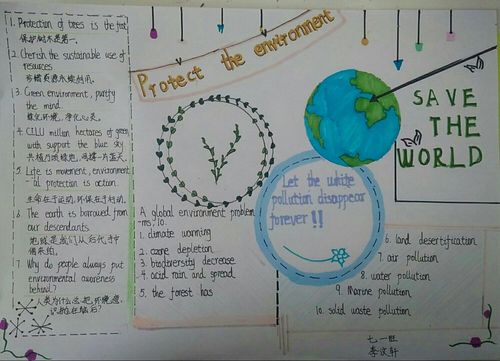 1. Protection of trees is the first
保护树木是第一.
2. Cherish the sustainable use of
resources
珍惜资源永续利用.
3. Green environment, purify
the mind.
绿化环境, 净化心灵.
4. CELU million hectares of green,
with support the blue sky
共植万顷绿地, 共撑一片蓝天.
5. Life is movement, environment
al protection is action.
生命在于运动, 环保在于行动.
6. The earth is borrowed from
our descendants
地球是我们从后代手中
借来的.
7. Why do people always put
environmental awareness
behind?
人类为什么总把环境意
识抛在脑后?
Protect the environment
SAVE
THE
WORLD
Let the white
pollution disappear
forever!!
A global environment problem
-ms. 10.
1. climate warning
2. ozone depletion
3. biodiversity decrease
4. acid rain and spread
5. the forest has
6. land desertification
7. air pollution
8. water pollution
9. Marine pollution
10. solid waste pollution
七一班